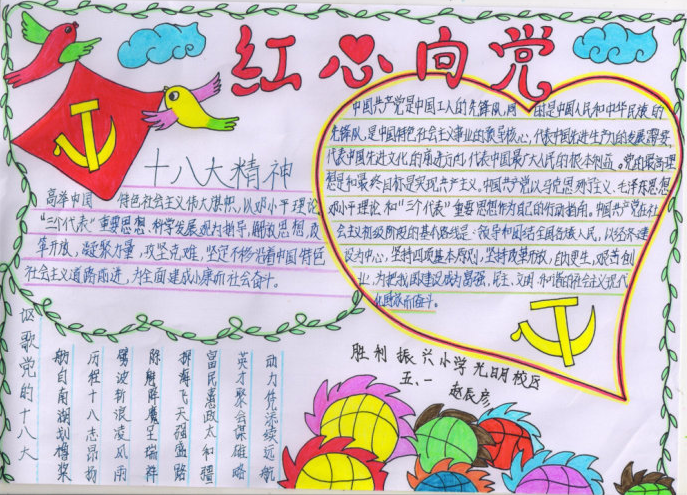 红心向党
十八大精神
高举中国 特色社会主义伟大旗帜,以邓小平理论
“三个代表”重要思想、科学发展观为指导,解放思想,改
革开放,凝聚力量,攻坚克难,坚定不移沿着中国特色
社会主义道路前进,为全面建成小康社会奋斗。
中国共产党是中国工人的先锋队,同 时是中国人民和中华民族的
先锋队,是中国特色社会主义事业的领导核心,代表中国先进生产力的发展需要,
代表中国先进文化的前进方向,代表中国最广大人民的根本利益。党的最高理
想是和最终目标是实现共产主义,中国共产党以马克思列宁主义、毛泽东思想
邓小平理论和“三个代表”重要思想作为自己的行动指南。中国共产党在社
会主义初级阶段的基本路线是:领导和团结全国各族人民,以经济建
设为中心,坚持四项基本原则,坚持改革开放,自力更生,艰苦创
业,为把我国建设成为富强、民主、文明、和谐的社会主义现代
化国家而奋斗。
讴歌党的十八大
舫自南湖划橹桨
历程十八志昂扬
劈波斩浪凌风雨
除魔呈瑞祥
排海飞天强盛路
富民惠政太和疆
英才聚会谋雄略
动力凭添续远航
胜利振兴小学光明校区
五.一 赵辰彦